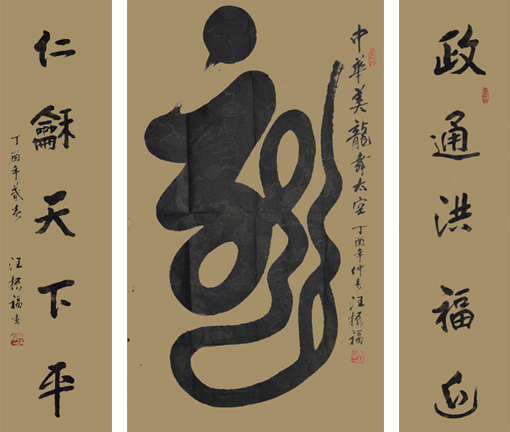 政通洪福近
龍
中華美龍舞太空
丁酉年仲春
汪振福
仁龢天下平
丁酉年春
汪振福书